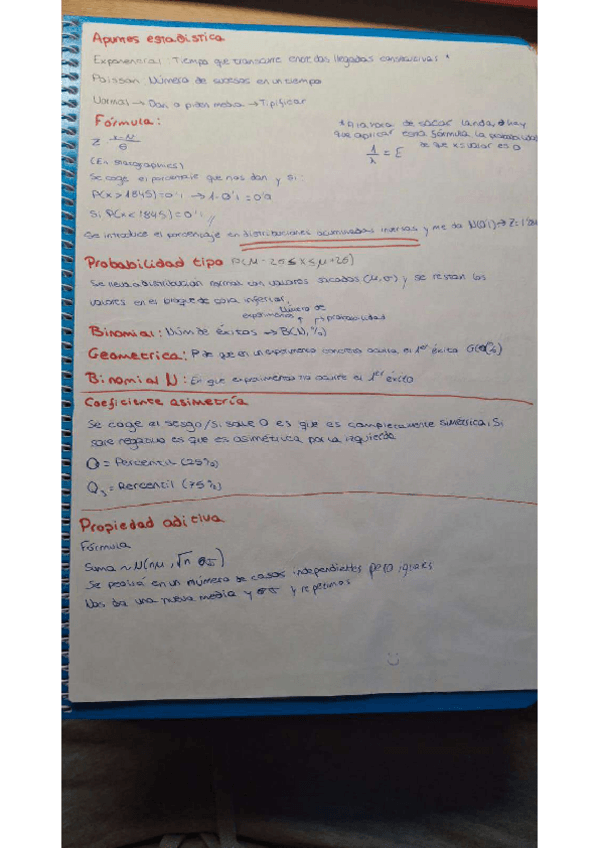 Apuntes estadística
Exponencial: Tiempo que transcurre entre dos llegadas consecutivas *
Poisson: Número de sucesos en un tiempo
Normal → Dan o piden media → Tipificar
Fórmula:
* A la hora de sacar landa, hay
que aplicar esta fórmula. La probabilidad
de que x sea valor es 0
1/λ = E
Z = x-μ/σ
(En statgraphics)
Se coge el porcentaje que nos dan y si:
P(X > 1845) = 0'1 → 1-0'1 = 0'9
Si P(X < 1845) = 0'1
Se introduce el porcentaje en distribuciones acumuladas inversas y me da N(0,1) → Z =
Probabilidad tipo P(μ-2σ ≤ X ≤ μ+2σ)
Se lleva a distribución normal con valores sacados (μ,σ) y se restan los
valores en el bloque de cola inferior.
Número de
experimentos probabilidad
Binomial: Núm de éxitos → B(N, %)
Geometrica: P de que en un experimento concreto ocurra el 1er éxito G(%)
Binomial N: En que experimento ocurre el 1er éxito
Coeficiente asimetría
Se coge el sesgo/Si sale 0 es que es completamente simétrica. Si
sale negativo es que es asimétrica por la izquierda
Q = Percentil (25%)
Q3 = Percentil (75%)
Propiedad aditiva
Fórmula
Suma ~ N(nμ, √n σ)
Se pedirá en un número de casos independientes pero iguales
Nos da una nueva media y y repetimos